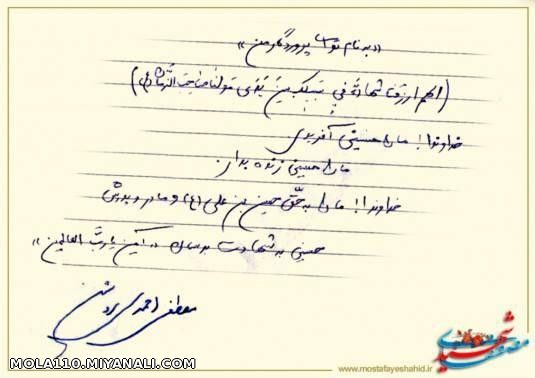 «به نام توست پروردگار من»
(اللهم ارزقنا شهادة في سبيلك بين يدى مولانا صاحب الزمان(ع))
خداوندا! ما را حسینی آفریدی
ما را حسینی زنده بدار.
خداوندا! ما را به حق حسین بن علی (ع) و مادر و پدرش
حسینی به شهادت برسان «آمین یا رب العالمین»
مصطفی احمدی روشن
MOLA110.MIYANALI.COM
www.mostafayeshahid.ir